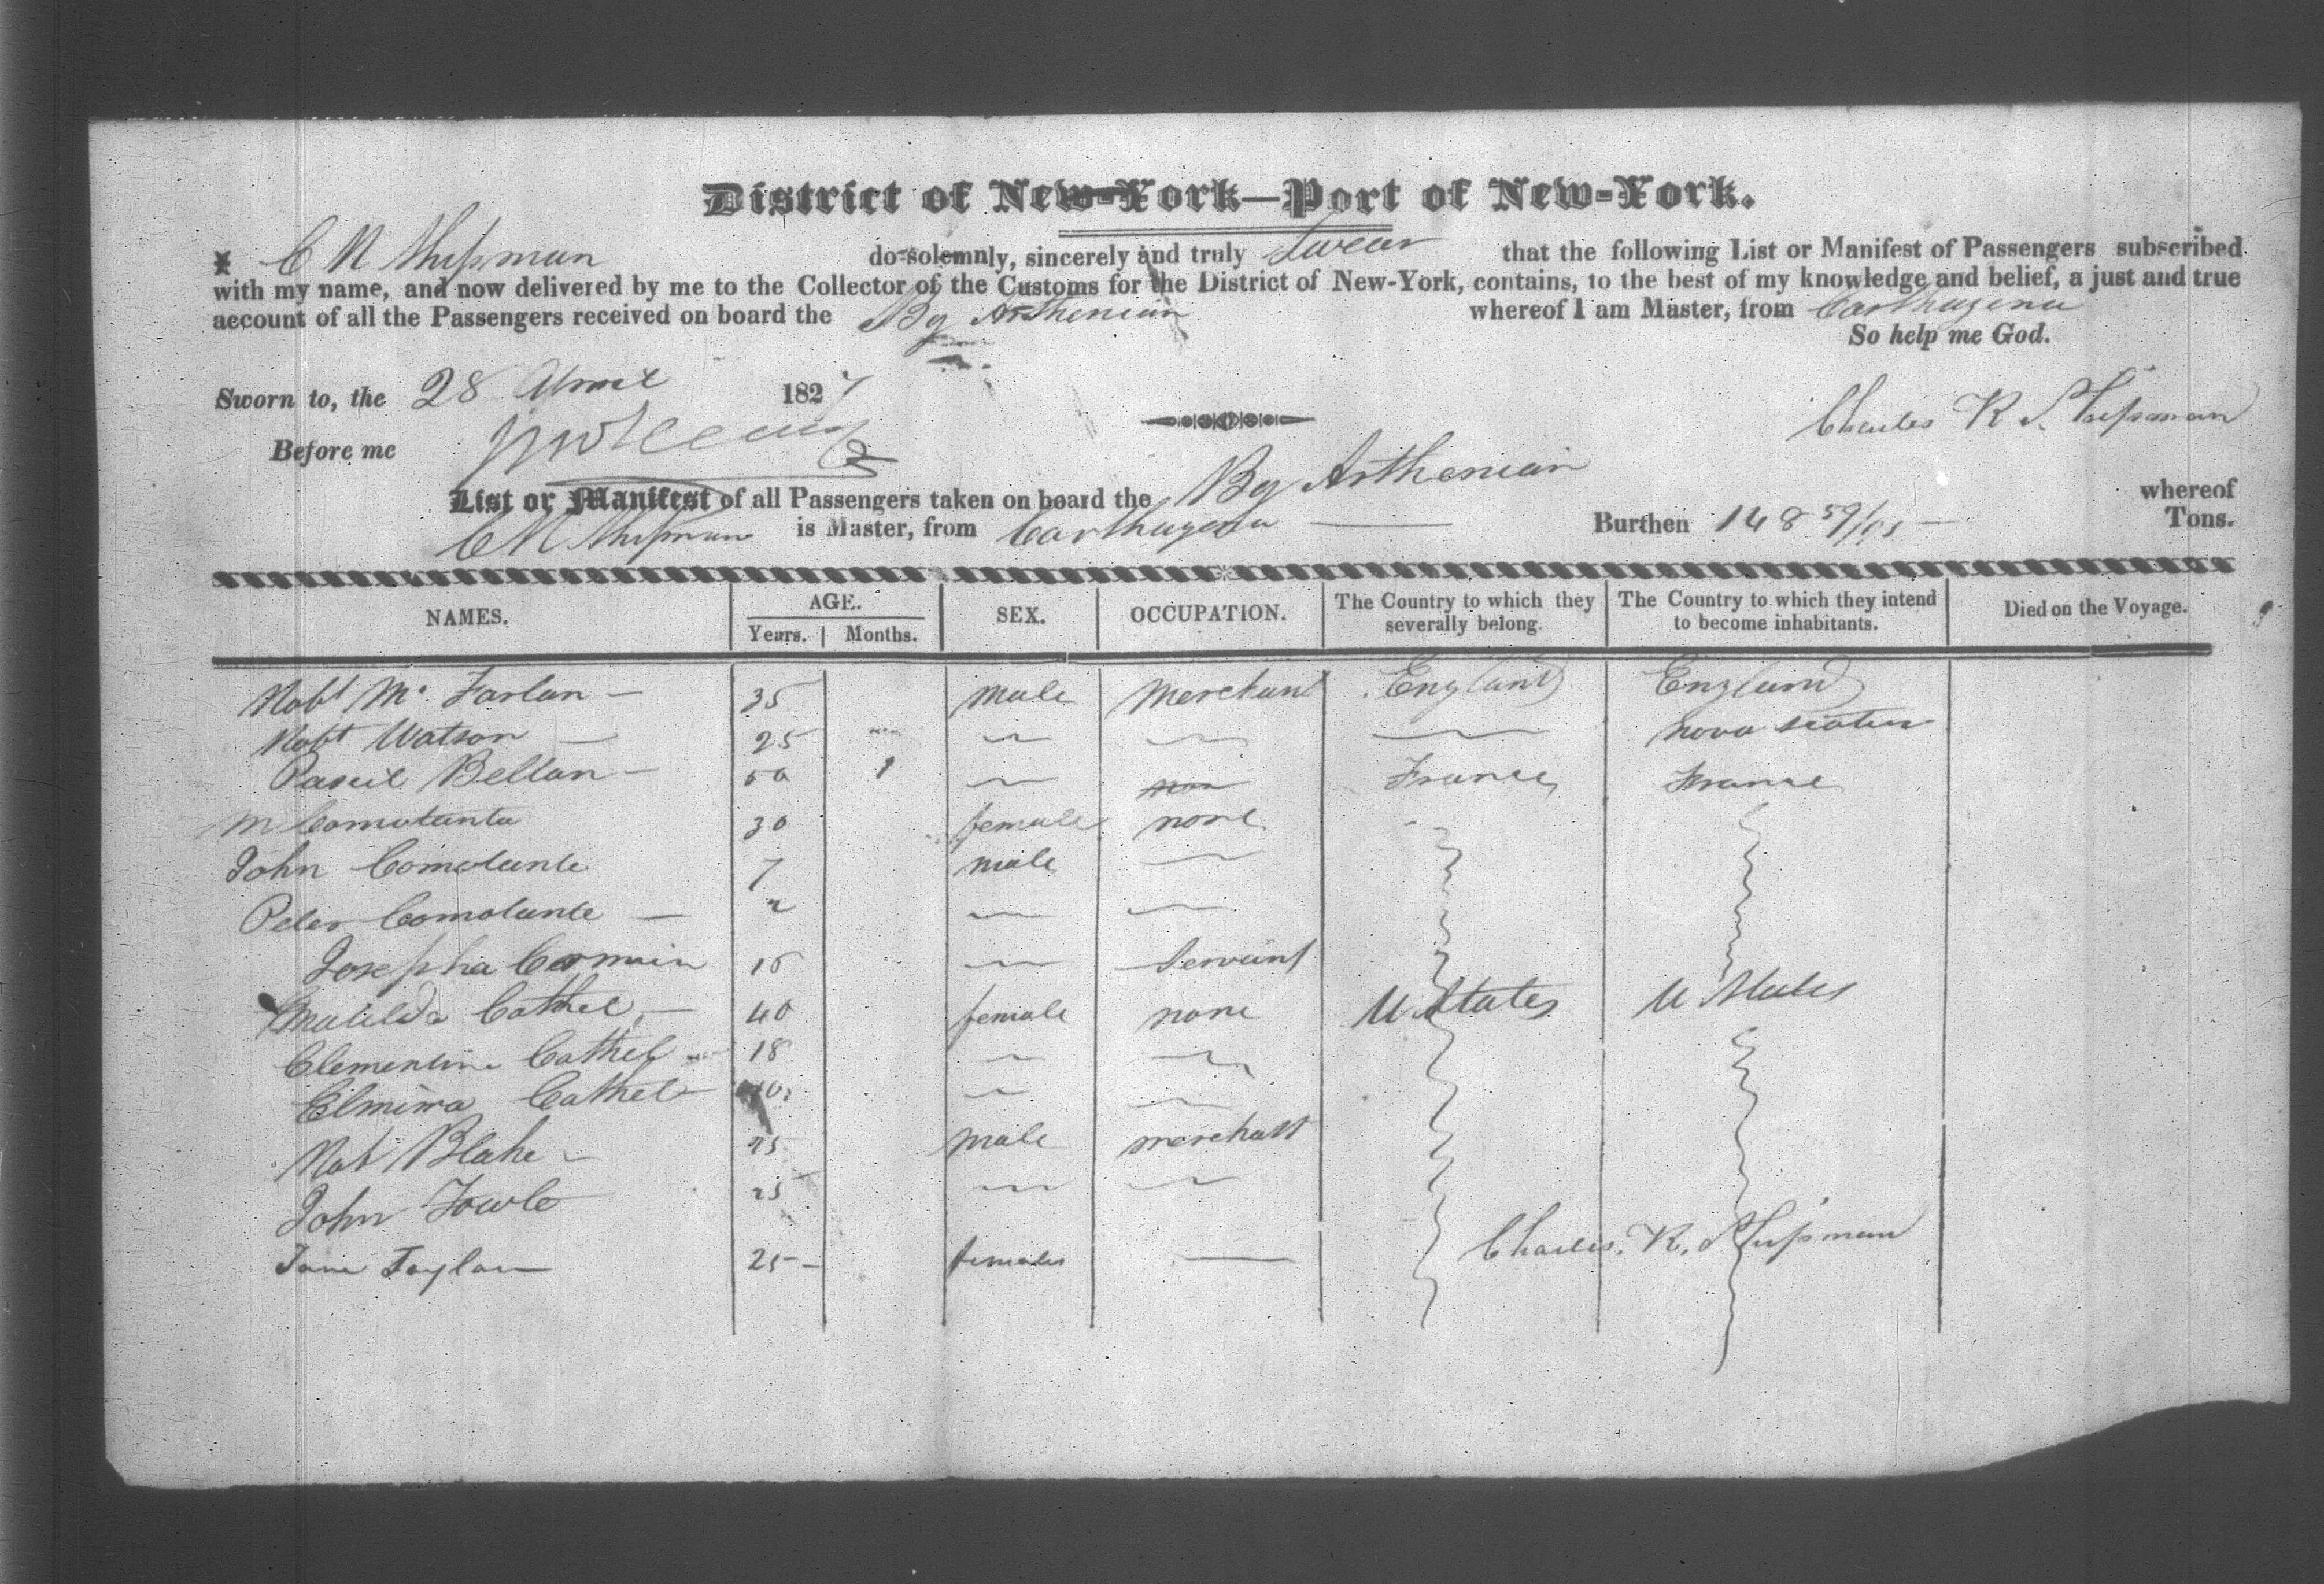 District of New-York—Port of New-York.
I C R Shipman do solemnly, sincerely and truly Swear that the following List or Manifest of Passengers subscribed
with my name, and now delivered by me to the Collector of the Customs for the District of New-York, contains, to the best of my knowledge and belief, a just and true
account of all the Passengers received on board the Bg Arthenian whereof I am Master, from Carthagena
So help me God.
Sworn to, the 28 April 1827
Charles R. Shipman
Before me
List or Manifest of all Passengers taken on board the Bg Arthenian whereof
C R Shipman is Master, from Carthagena — Burthen 148 59/95 — Tons.
NAMES. AGE. Years. Months. SEX. OCCUPATION. The Country to which they severally belong. The Country to which they intend to become inhabitants. Died on the Voyage.
Robt Mc Farlan — 35 male Merchant England England
Robt Watson — 25 nova scotia
Bellan — France France
M Comotanta 30 female none
John Comotante 7 male
Peter Comotante — 2
Josepha Carmin 16 Servant
Matilda Cathel — 40 female none U States U States
Clementina Cathel 18
Elmira Cathel
Rob Blake — 25 male merchant
John Fowle 25
Jane Taylor 25 — female —
Charles. R. Shipman